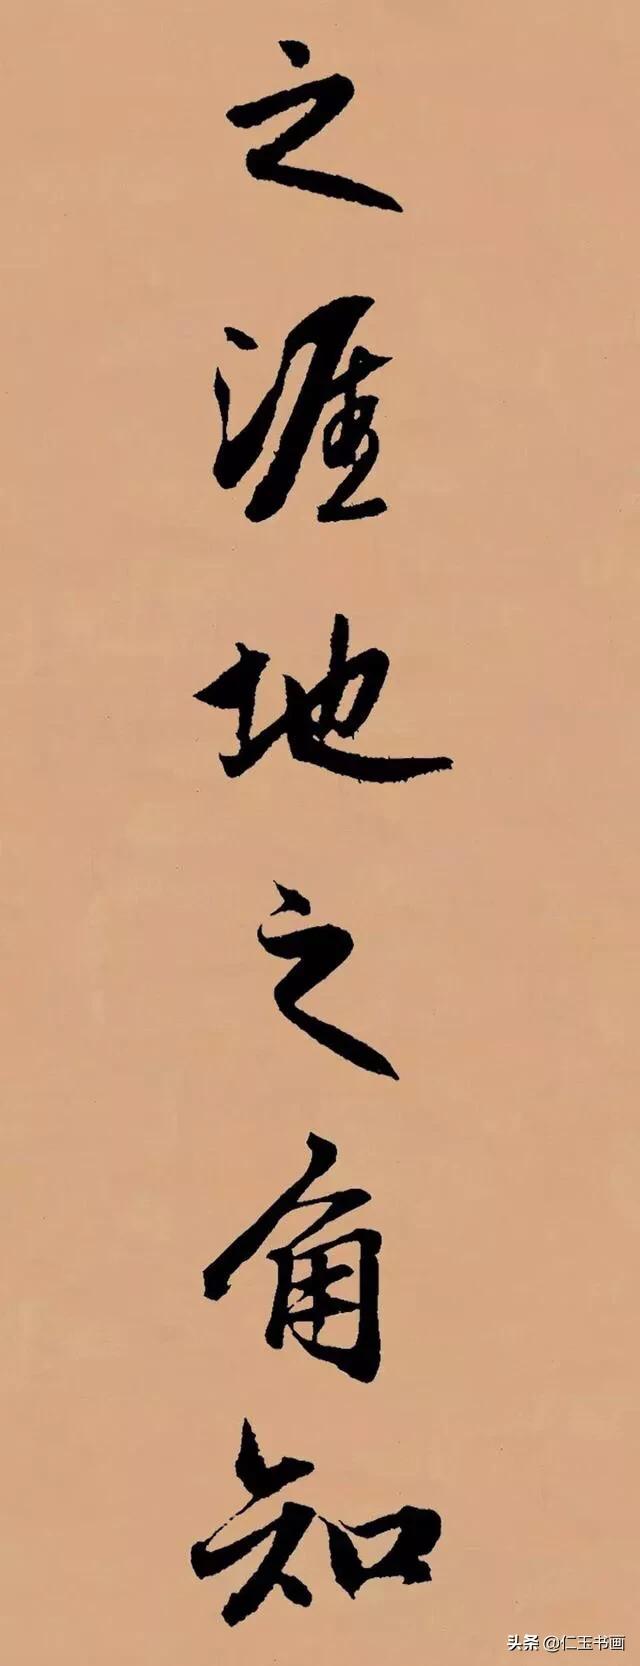 之涯地之角知
头条 @仁玉书画